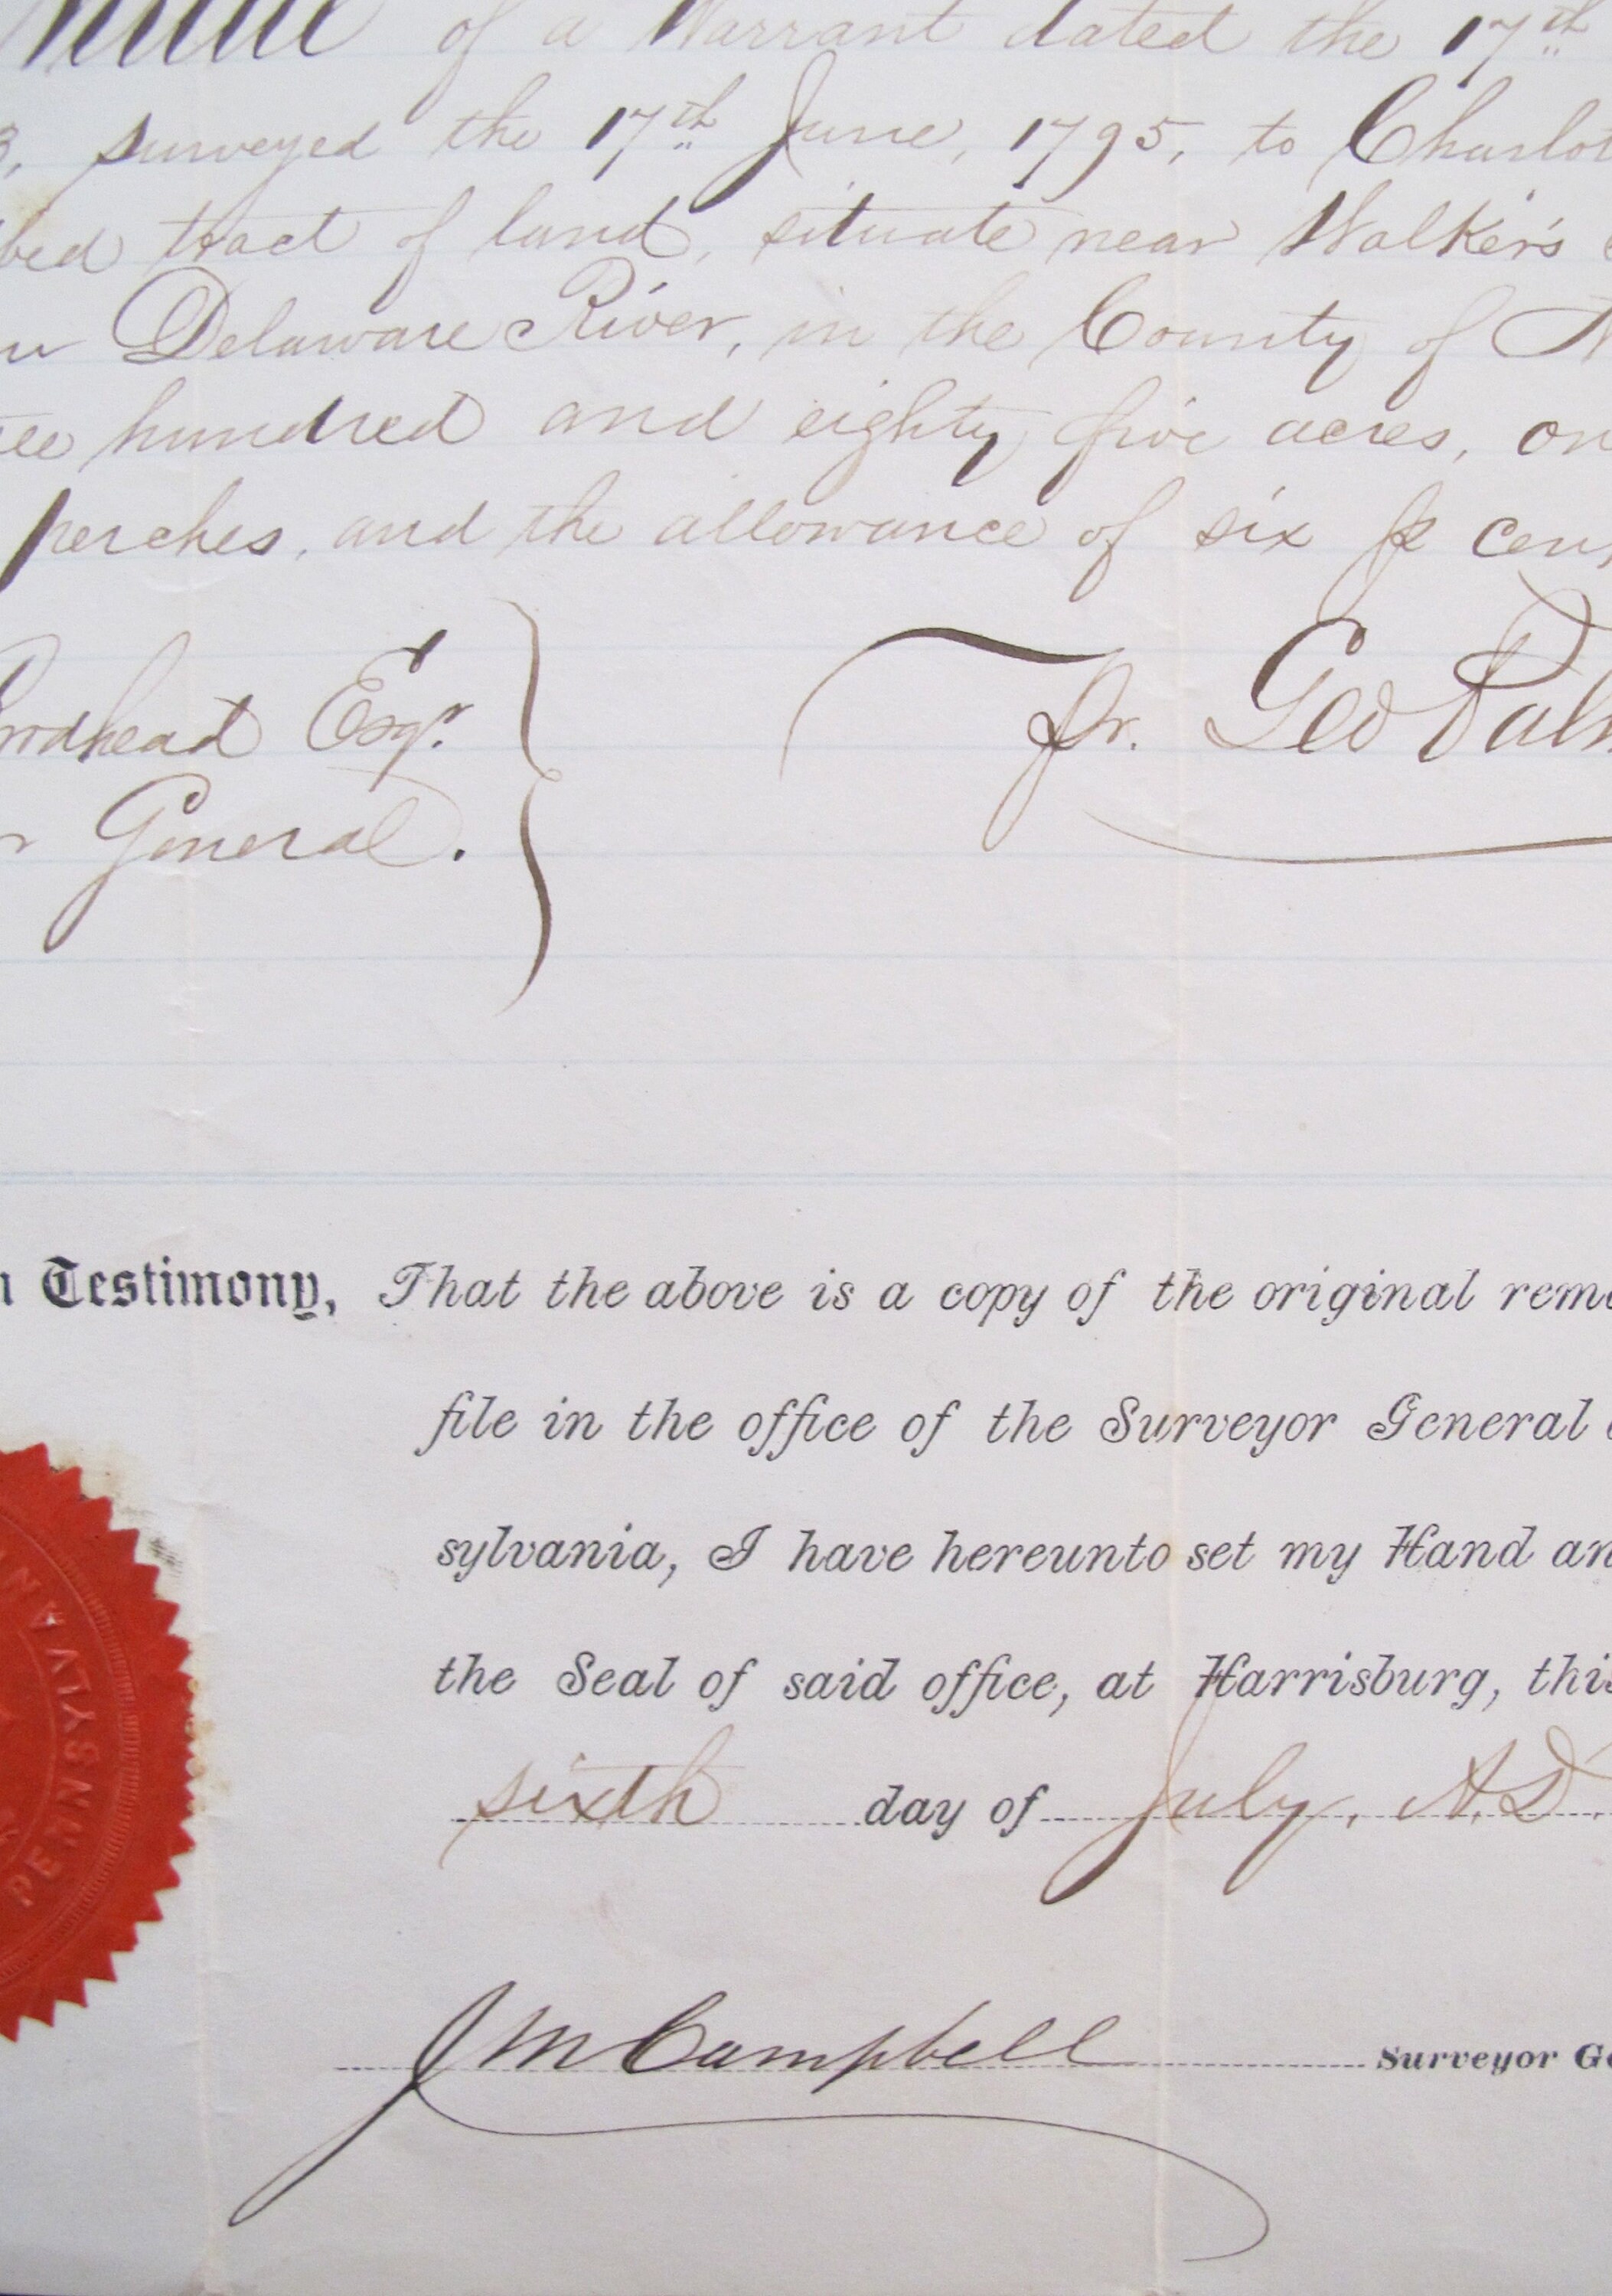 of a Warrant dated the 17th
3, surveyed the 17th June, 1795, to Charlot
bed tract of land, situate near Walker's
Delaware River, in the County of N
ee hundred and eighty five acres, on
perches, and the allowance of six p cen
rodhead Esqr.
General.
pr. Geo Palm
n Testimony, That the above is a copy of the original rema
file in the office of the Surveyor General
sylvania, I have hereunto set my Hand an
the Seal of said office, at Harrisburg, this
sixth day of July, A.D.
J M Campbell Surveyor Ge
PENNSYLVAN